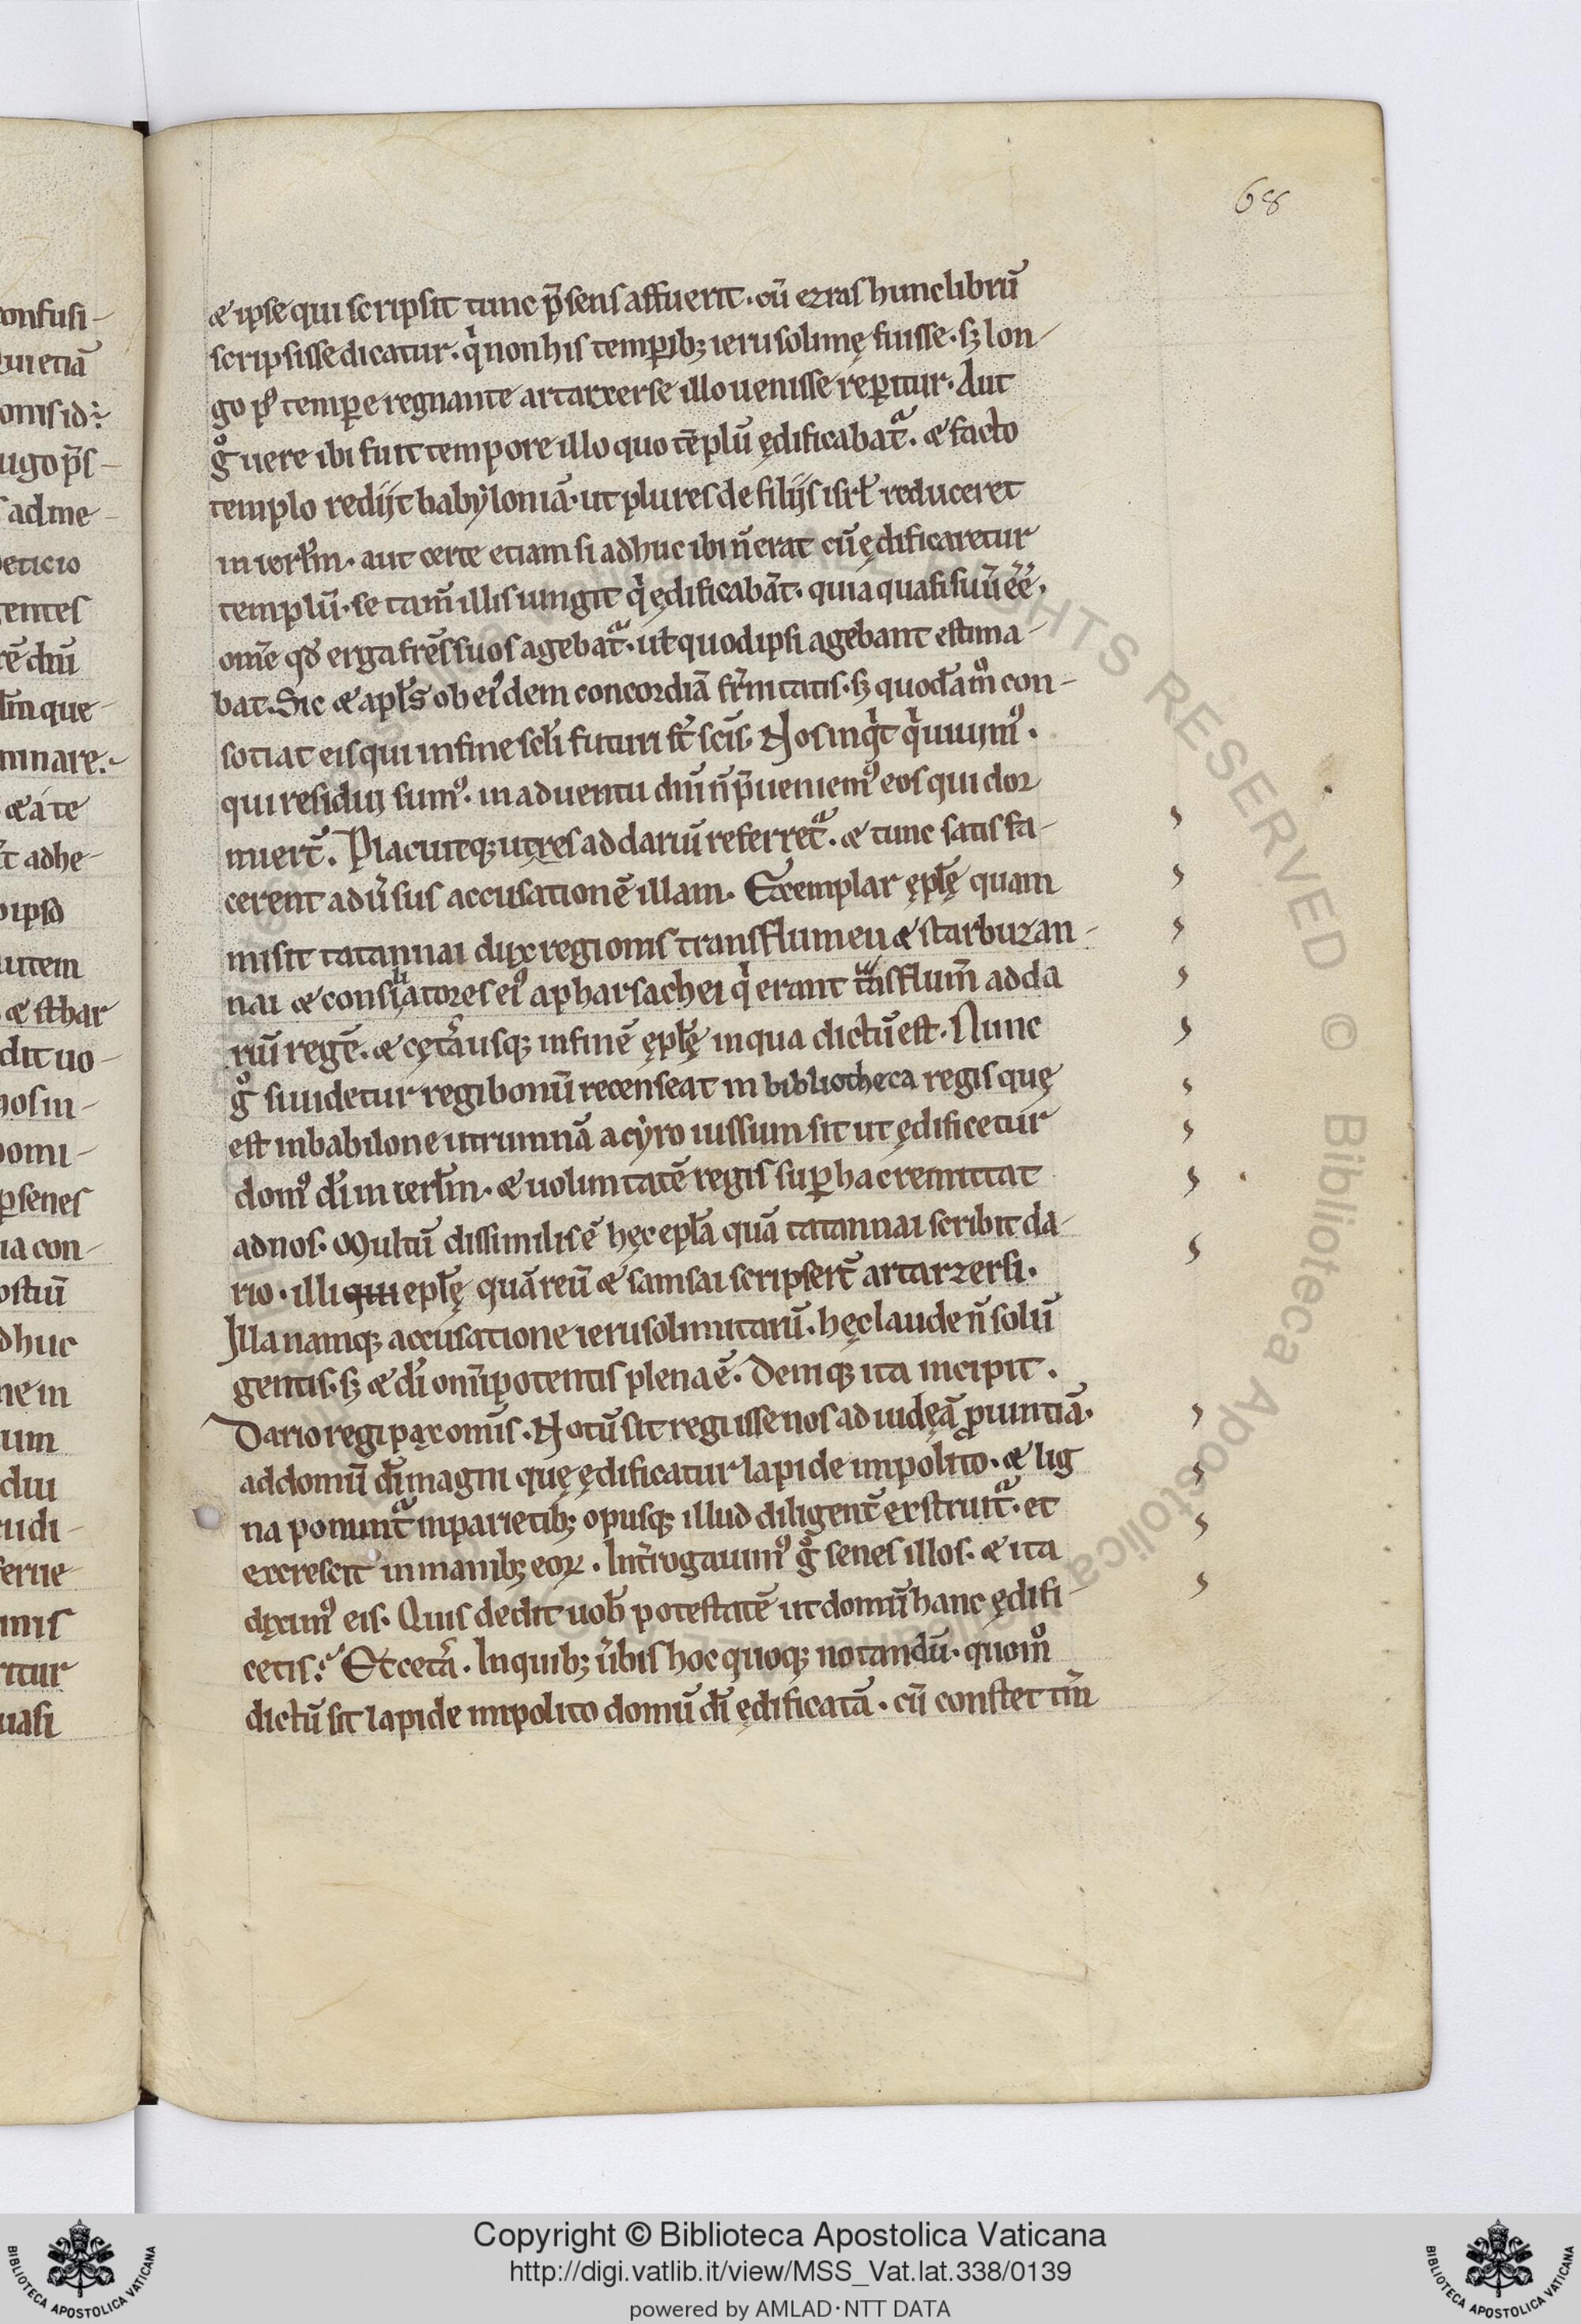 68
onfusi-
uietiā
onis id
ugo p̄s-
s ad me-
eticio
entes
rē dn̄i
l̄m que-
minare.
& a te
t adhe-
ipso
utem
& sthar
dit uo-
nos in-
omi-
ꝑ senes
ia con-
ostiū
dhuc
ne in
um
diu
udi-
erue-
nnis
ritur
uasi
& ipse qui scripsit tunc p̄sens affuerit. cū ezras hunc librū
scripsisse dicatur. qͥ non his temꝑibꝫ ierusolimę fuisse. sꝫ lon-
go pꝰ temꝑe regnante artarxerse illo uenisse reꝑitur. Aut
gͦ uere ibi fuit tempore illo quo tēplū ędificabatᷓ. & facto
templo redijt babẏloniā. ut plures de filijs isrł reduceret
in ierłm. aut certe etiam si adhuc ibi n̄ erat cū ędificaretur
templū. se tam̄ illis iungit qͥ ędificabāt. quia quasi suū ēē.
om̄e qd̄ erga frēs suos agebatᷓ. uł quod ipsi agebant estima-
bat. Sic & apłs ob eiꝰdem concordiā fr̄nitatis. sꝫ quodāmͦ con-
sotiat eis qui in fine scłi futuri st̄ scīs. Nos inqͥt qͥ uiuimꝰ.
qui residui sumꝰ. in aduentu dn̄i n̄ p̄ueniemꝰ eos qui dor
mierт̄. Placuitqꝫ ut res ad dariū referretᷓ. & tunc satis fa-
cerent adūsus accusationē illam. Exemplar ępłę quam
misit tatannai dux regionis transflumen & starbuzan-
nai & consiliatores eiꝰ apharsachei qͥ erant tᷓnsflum̄ ad da
riū regē. & cęt̄a usqꝫ in finē ępłę in qua dictū est. Nunc
gͦ si uidetur regi bonū recenseat in bibliotheca regis quę
est in babilone utrumnā a cẏro iussum sit ut ędificetur
domꝰ dī in ierłm. & uoluntatē regis suꝑ hac remittat
ad nos. Multū dissimilis ē hęc epła quā tatannai scribit da-
rio. illi qui epłę quā reū & samsai scripsert̄ artarxersi.
Illa namqꝫ accusatione ierusolimitarū. hęc laude n̄ solū
gentis. sꝫ & dī omīpotentis plena ē. Deniqꝫ ita incipit.
Dario regi pax om̄is. Notū sit regi isse nos ad iudęā ꝓuintiā.
ad domū dī magni quę ędificatur lapide impolito. & lig
na ponunтᷓ in parietibꝫ opusqꝫ illud diligent̄ exstruitᷓ. et
excrescit in manibꝫ eoꝝ. Int̄rogauimꝰ gͦ senes illos. & ita
diximꝰ eis. Quis dedit uob̄ potestatē ut domū hanc ędifi-
cetis? Et cet̄a. In quibꝫ ūbis hoc quoqꝫ notandū. quomͦ
dictū sit lapide impolito domū dī ędificatā. cū constet tm̄
ALL RIGHTS RESERVED © Biblioteca Apostolica
Copyright © Biblioteca Apostolica Vaticana
http://digi.vatlib.it/view/MSS_Vat.lat.338/0139
powered by AMLAD·NTT DATA
BIBLIOTECA APOSTOLICA VATICANA
BIBLIOTECA APOSTOLICA VATICANA